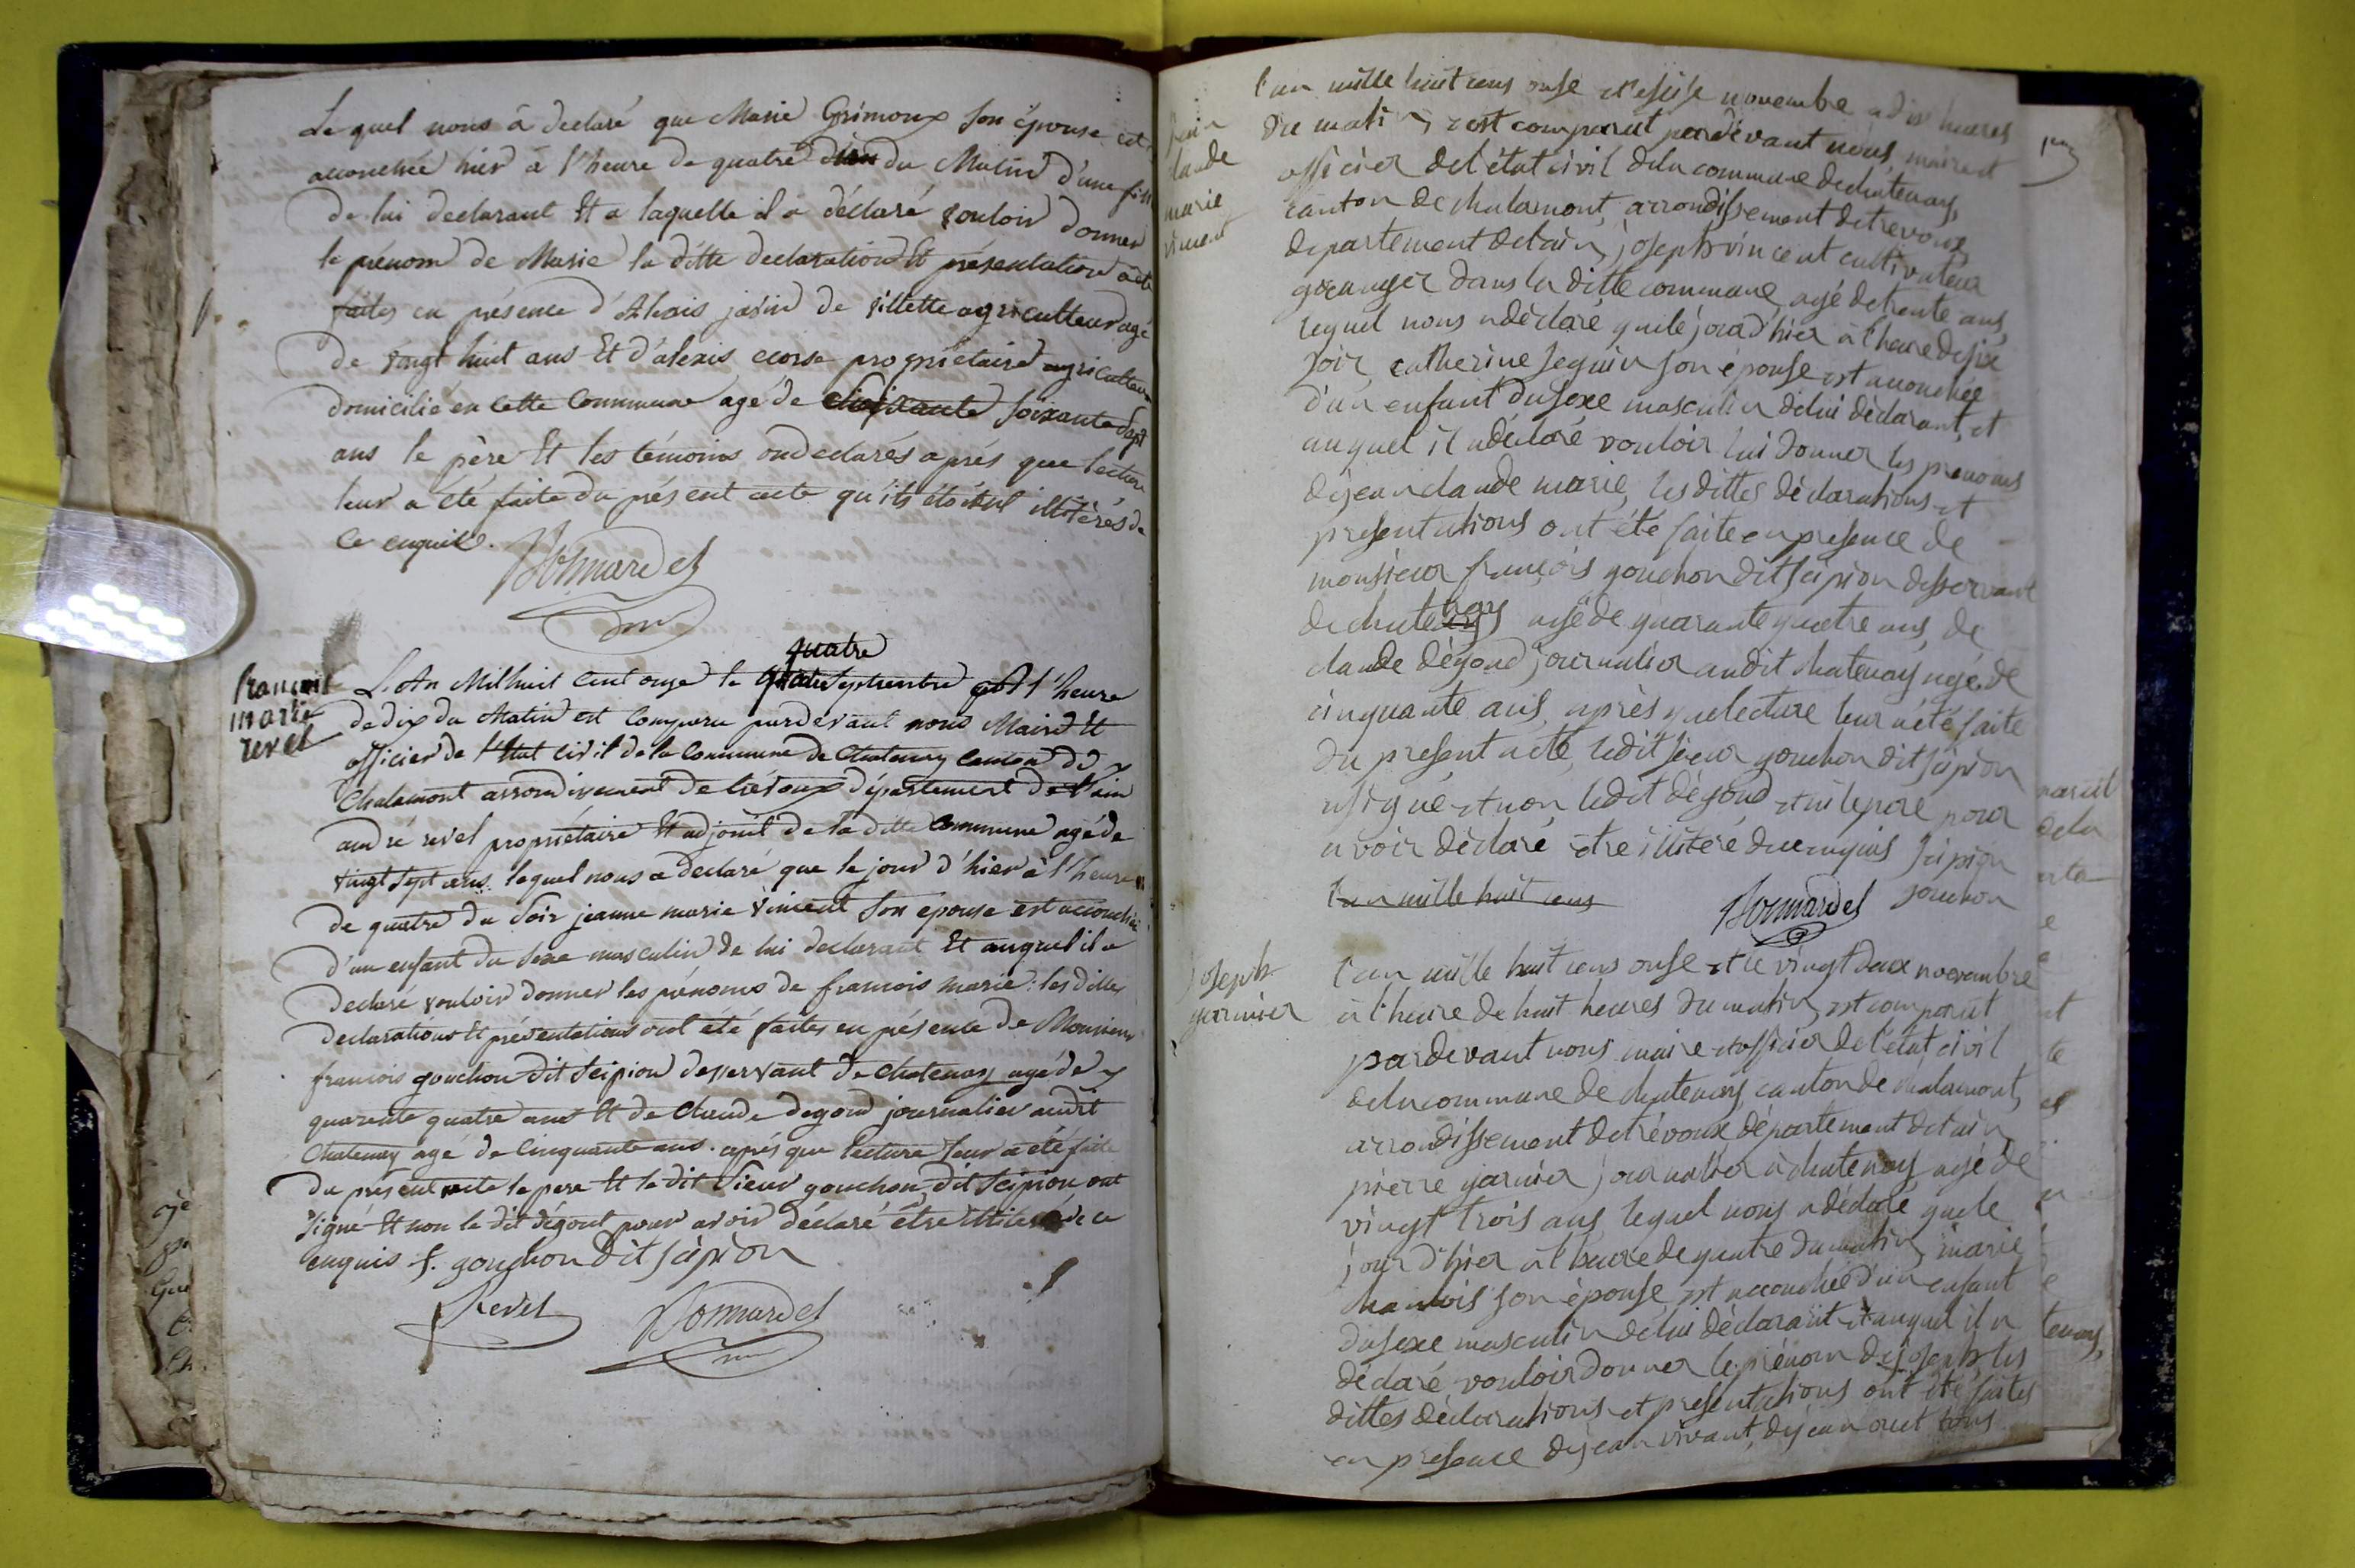 Le quel nous à declaré que Marie Grimoux son épouse est
accouchée hier à l'heure de quatre du Matin d'une fille
de lui declarant Et a laquelle il a déclaré vouloir donner
le prénom de Marie la ditte declaration Et présentation a été
faites en présence d' janin de villette agriculteur agé
de vingt huit ans Et d'alexis ecorse propriétaire agriculteur
domicilié en cette Commune agé de soixante sept
ans le père Et les témoins ondeclarés aprés que lecture
leur a été faite du présent acte qu'ils étoient illitérés de
ce enquis.
Bonnardel
francois
marie
revel
quatre
L'An Mil huit cent onze le Septembre a l'heure
de dix du Matin est comparu pardevant nous Maire Et
officier de l'Etat civil de la Commune de Chatenay canton de
Chalamont arrondissement de trévoux département de l'ain
andré revel propriétaire Et adjoint de la ditte Commune agé de
vingt sept ans. lequel nous a declaré que le jour d'hier à l'heure
de quatre du soir jeanne marie vincent son epouse est accouchée
d'un enfant du sexe masculin de lui declarant Et auquel il a
declaré vouloir donner les prénoms de francois marie: les dittes
declarations Et présentations ont été faites en présence de Monsieur
francois gouchon dit scipion desservant de chatenay agé de
quarente quatre ans Et de Claude degoud journalier audit
Chatenay agé de Cinquante ans. aprés que lecture leur a été faite
du présent acte le pere Et le dit sieur gouchon dit scipion ont
signé Et non le dit dégout pour avoir déclaré être de ce
enquis f. gouchon dit scipion
Revel Bonnardel
jean
claude
marie
vincent
l'an mille huit cens onse et le seise novembre a dix heures
du matin, est comparut pardevant nous maire et
officier de l'état civil de la commune de chatenay,
canton de chalamont, arrondissement de trevoux,
departement de l'ain, joseph vincent cultivateur
granger dans la ditte commune, agé de trente ans,
lequel nous a déclaré que le jour d'hier à l'heure de six
soir, catherine seguin son épouse est accouchée
d'un enfant du sexe masculin de lui déclarant, et
auquel il a déclaré vouloir lui donner les prenoms
de jean claude marie, les dittes déclarations et
presentations ont été faite en presence de
monsieur françois gouchon dit scipion desservant
de chatenay agé de quarante quatre ans, de
claude dégoud journalier audit chatenay agé de
cinquante ans, après que lecture leur a été faite
du present acte, ledit sieur gouchon dit scipion
a signé et non ledit dégoud et ni le pere pour
avoir déclaré être illitéré de ce enquis scipion
l'an mille huit cens Bonnardel gouchon
joseph
garnier
l'an mille huit cens onse et le vingt deux novembre
à l'heure de huit heures du matin, est comparut
pardevant nous maire et officier de l'état civil
de la commune de chatenay, canton de chalamont,
arrondissement de trévoux, département de l'ain
pierre garnier journalier à chatenay agé de
vingt trois ans, lequel nous a déclaré que le
jour d'hier à l'heure de quatre du matin, marie
son épouse, est accouchée d'un enfant
du sexe masculin de lui déclarant et auquel il a
déclaré vouloir donner le prénom de joseph, les
dittes déclarations et presentations ont été faites
en presence de jean vivant, de jean tous